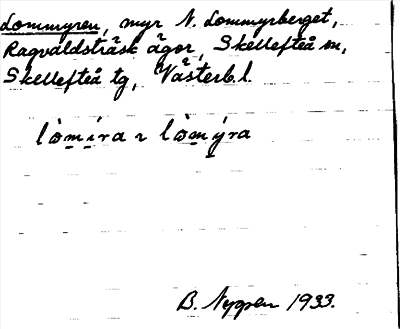 Lommyren, myr N. Lommyrberget,
Ragvaldsträsk ägor, Skellefteå sn,
Skellefteå tg, Västerb. l.
lòmíra ~ lòmýra
B. Nygren 1933.